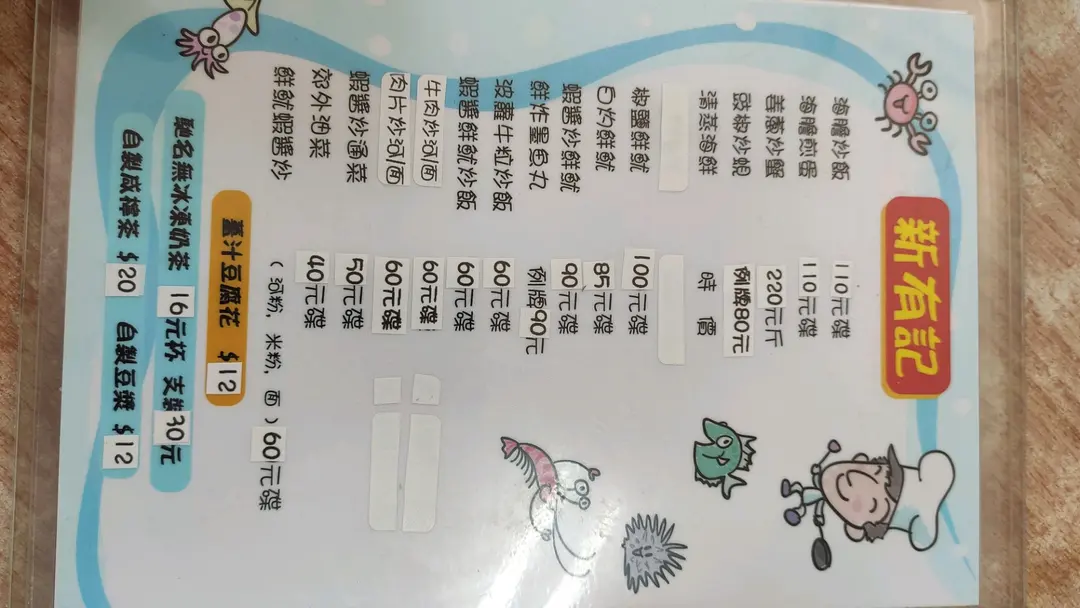 新有記
海膽炒飯 110元碟
海膽煎蛋 110元碟
薑蔥炒蟹 220元斤
豉椒炒蜆 例牌80元
清蒸海鮮 時價
椒鹽鮮魷 100元碟
白灼鮮魷 85元碟
蝦醬炒鮮魷 90元碟
鮮炸墨魚丸 例牌90元
波蘿牛粒炒飯 60元碟
蝦醬鮮魷炒飯 60元碟
牛肉炒河面 60元碟
肉片炒河面 60元碟
蝦醬炒通菜 50元碟
郊外油菜 40元碟
鮮魷蝦醬炒（河粉，米粉，面）60元碟
薑汁豆腐花 $12
馳名無冰凍奶茶 16元杯 支裝30元
自製咸檸茶 $20 自製豆漿 $12